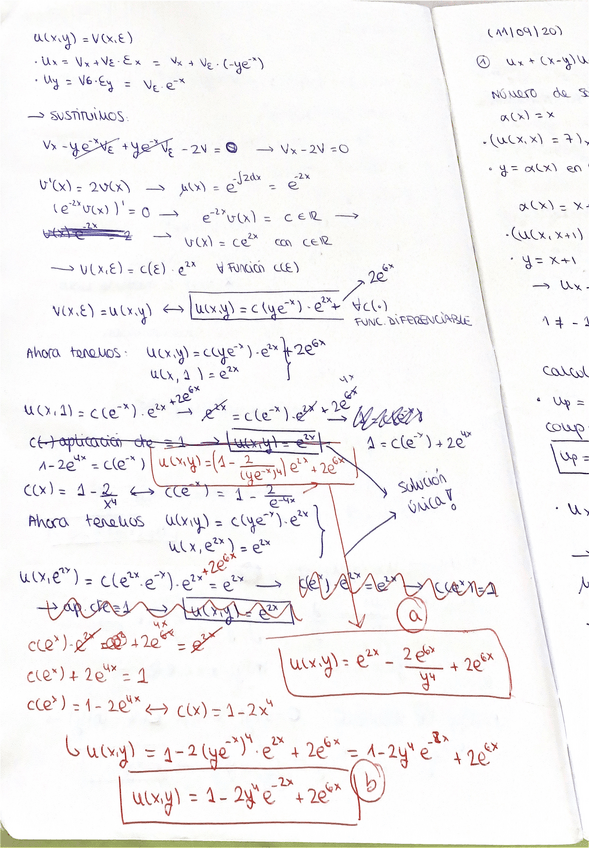 u(x,y) = V(x,ε)
· Ux = Vx + Vε · εx = Vx + Vε · (-ye⁻ˣ)
· Uy = Vε · εy = Vε · e⁻ˣ
→ SUSTITUIMOS:
Vx - ye⁻ˣVε + ye⁻ˣVε - 2V = 0 → Vx - 2V = 0
V'(x) = 2V(x) → μ(x) = e^(-∫2dx) = e⁻²ˣ
(e⁻²ˣV(x))' = 0 → e⁻²ˣV(x) = C ∈ ℝ →
→ V(x) = ce²ˣ con c ∈ ℝ
→ V(x,ε) = c(ε) · e²ˣ ∀ Función c(ε)
2e⁶ˣ
V(x,ε) = u(x,y) ↔ u(x,y) = c(ye⁻ˣ) · e²ˣ + ∀c(·)
FUNC. DIFERENCIABLE
Ahora tenemos: u(x,y) = c(ye⁻ˣ) · e²ˣ + 2e⁶ˣ
u(x,1) = e²ˣ
u(x,1) = c(e⁻ˣ) · e²ˣ + 2e⁶ˣ → e²ˣ = c(e⁻ˣ) · e²ˣ + 2e⁶ˣ 4x →
c(·) aplicación cte = 1 → u(x,y) = e²ˣ 1 = c(e⁻ˣ) + 2e⁴ˣ
1 - 2e⁴ˣ = c(e⁻ˣ) u(x,y) = (1 - 2/(ye⁻ˣ)⁴) e²ˣ + 2e⁶ˣ
c(x) = 1 - 2/x⁴ ↔ c(e⁻ˣ) = 1 - 2/e⁻⁴ˣ
solución
única!
Ahora tenemos u(x,y) = c(ye⁻ˣ) · e²ˣ
u(x,e²ˣ) = e²ˣ
u(x,e²ˣ) = c(e²ˣ · e⁻ˣ) · e²ˣ + 2e⁶ˣ = e²ˣ → c(eˣ) · e²ˣ = e²ˣ → c(eˣ) = 1
→ ap. cte = 1 → u(x,y) = e²ˣ
a
c(eˣ) · e²ˣ + 2e⁶ˣ 4x = e²ˣ
u(x,y) = e²ˣ - 2e⁶ˣ/y⁴ + 2e⁶ˣ
c(eˣ) + 2e⁴ˣ = 1
c(eˣ) = 1 - 2e⁴ˣ ↔ c(x) = 1 - 2x⁴
↳ u(x,y) = 1 - 2(ye⁻ˣ)⁴ · e²ˣ + 2e⁶ˣ = 1 - 2y⁴e⁻²ˣ + 2e⁶ˣ
u(x,y) = 1 - 2y⁴e⁻²ˣ + 2e⁶ˣ
b
(11/09/20)
① Ux + (x-y)U
Número de s
α(x) = x
· (u(x,x) = 7)
· y = α(x) en
α(x) = x+
· (u(x,x+1)
· y = x+1
→ Ux -
1 ≠ -1
calcul
· Up =
coup
Up =
· Ux